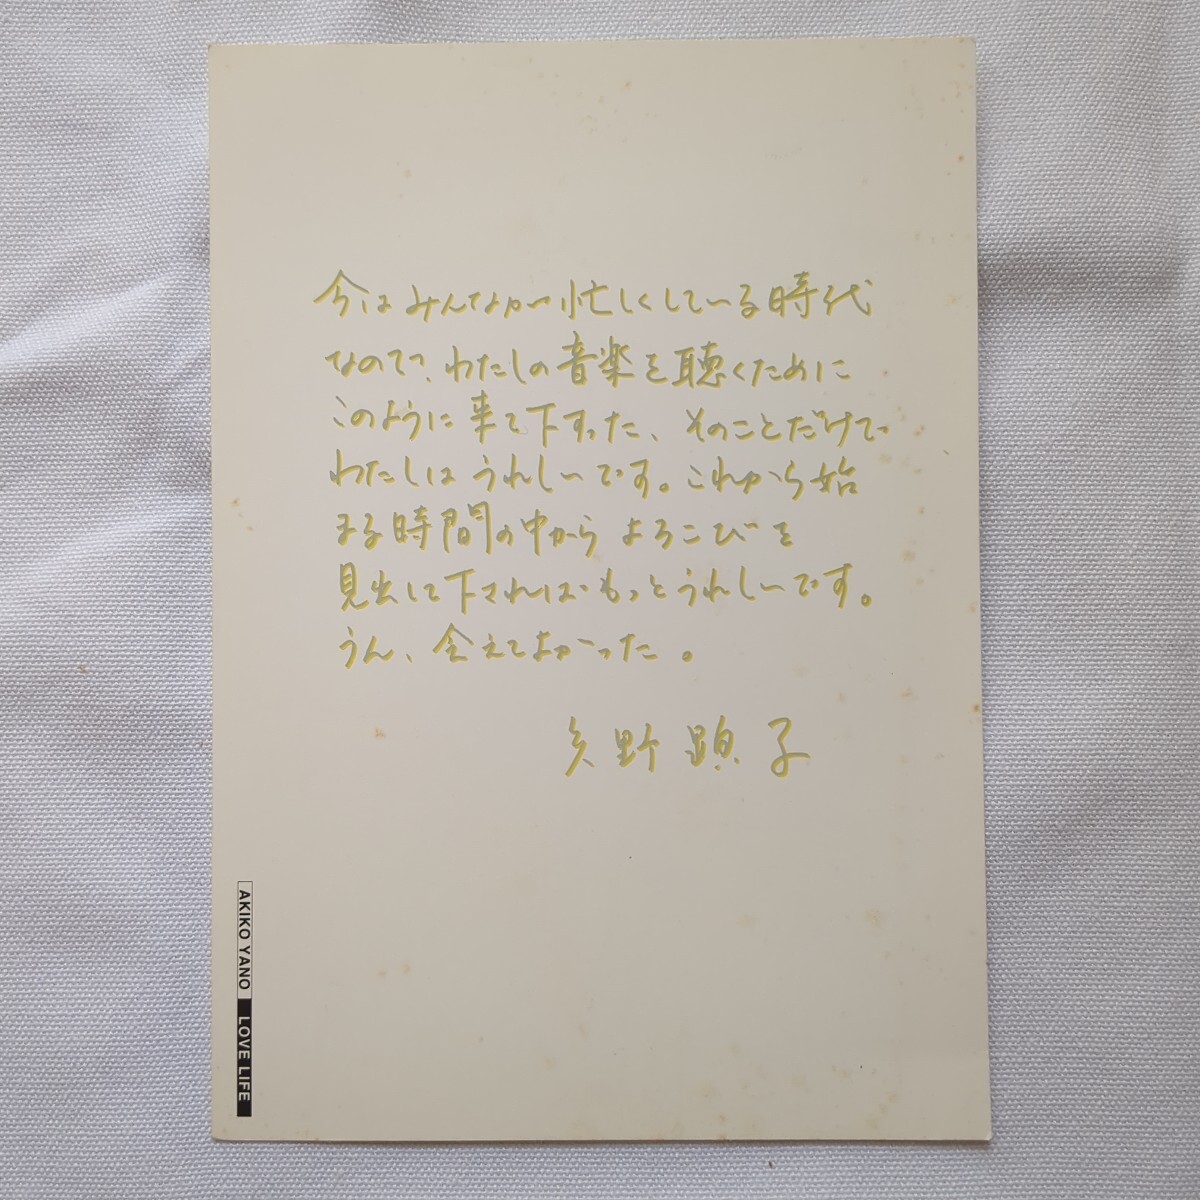 今はみんなが忙しくしている時代
なので、わたしの音楽を聴くために
このように来て下すった、そのことだけで
わたしはうれしーです。これから始
まる時間の中からよろこびを
見出して下されば、もっとうれしーです。
うん、会えてよかった。
矢野顕子
AKIKO YANO LOVE LIFE